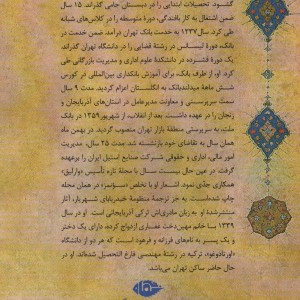 گشود. تحصیلات ابتدایی را در دبستان جامی گذراند. ۱۵ سال
ضمن اشتغال به کار بافندگی، دورهٔ متوسطه را در کلاس‌های شبانه
طی کرد. سال ۱۳۳۷ به خدمت بانک تهران درآمد. ضمن خدمت در
بانک، دورهٔ لیسانس در رشتهٔ قضایی را در دانشگاه تهران گذراند.
یک دورهٔ فشرده در دانشکدهٔ علوم اداری و مدیریت بازرگانی طی
کرد. او از طرف بانک، برای آموزش بانکداری بین‌المللی در کورس
شش ماههٔ میدلندبانک به انگلستان اعزام گردید. مدت ۹ سال
سمت سرپرستی و معاونت مدیرعامل در استان‌های آذربایجان و
زنجان را در عهده داشت. بعد از انقلاب، از شهریور ۱۳۵۹ بانک
ملت، به سرپرستی منطقهٔ بازار تهران منصوب گردید. در بهمن ماه
همان سال به تقاضای خود بازنشسته شد. مدت ۲۵ سال، مدیریت
امور مالی، اداری و حقوقی شرکت صنایع استیل ایران را برعهده
داشت. در عین حال بیست سال با مجله تازه تأسیس «وارلیق»
همکاری جدی نمود. اشعار او با تخلص «سونمز» در همان مجله
چاپ شده‌است. به جز ترجمهٔ منظومهٔ حیدربابای شهریار، آثار
منتشرشدهٔ او به زبان مادری‌اش ترکی آذربایجانی است. او در سال
۱۳۳۹ با خانم مهین‌دخت غفاری ازدواج کرد. دارای یک دختر
و یک پسر به نام‌های فرزانه و فرهود است که هر دو از دانشگاه
«اورتادوغو» ترکیه در رشتهٔ مهندسی فارغ التحصیل شده‌اند. او در
حال حاضر ساکن تهران می‌باشد.